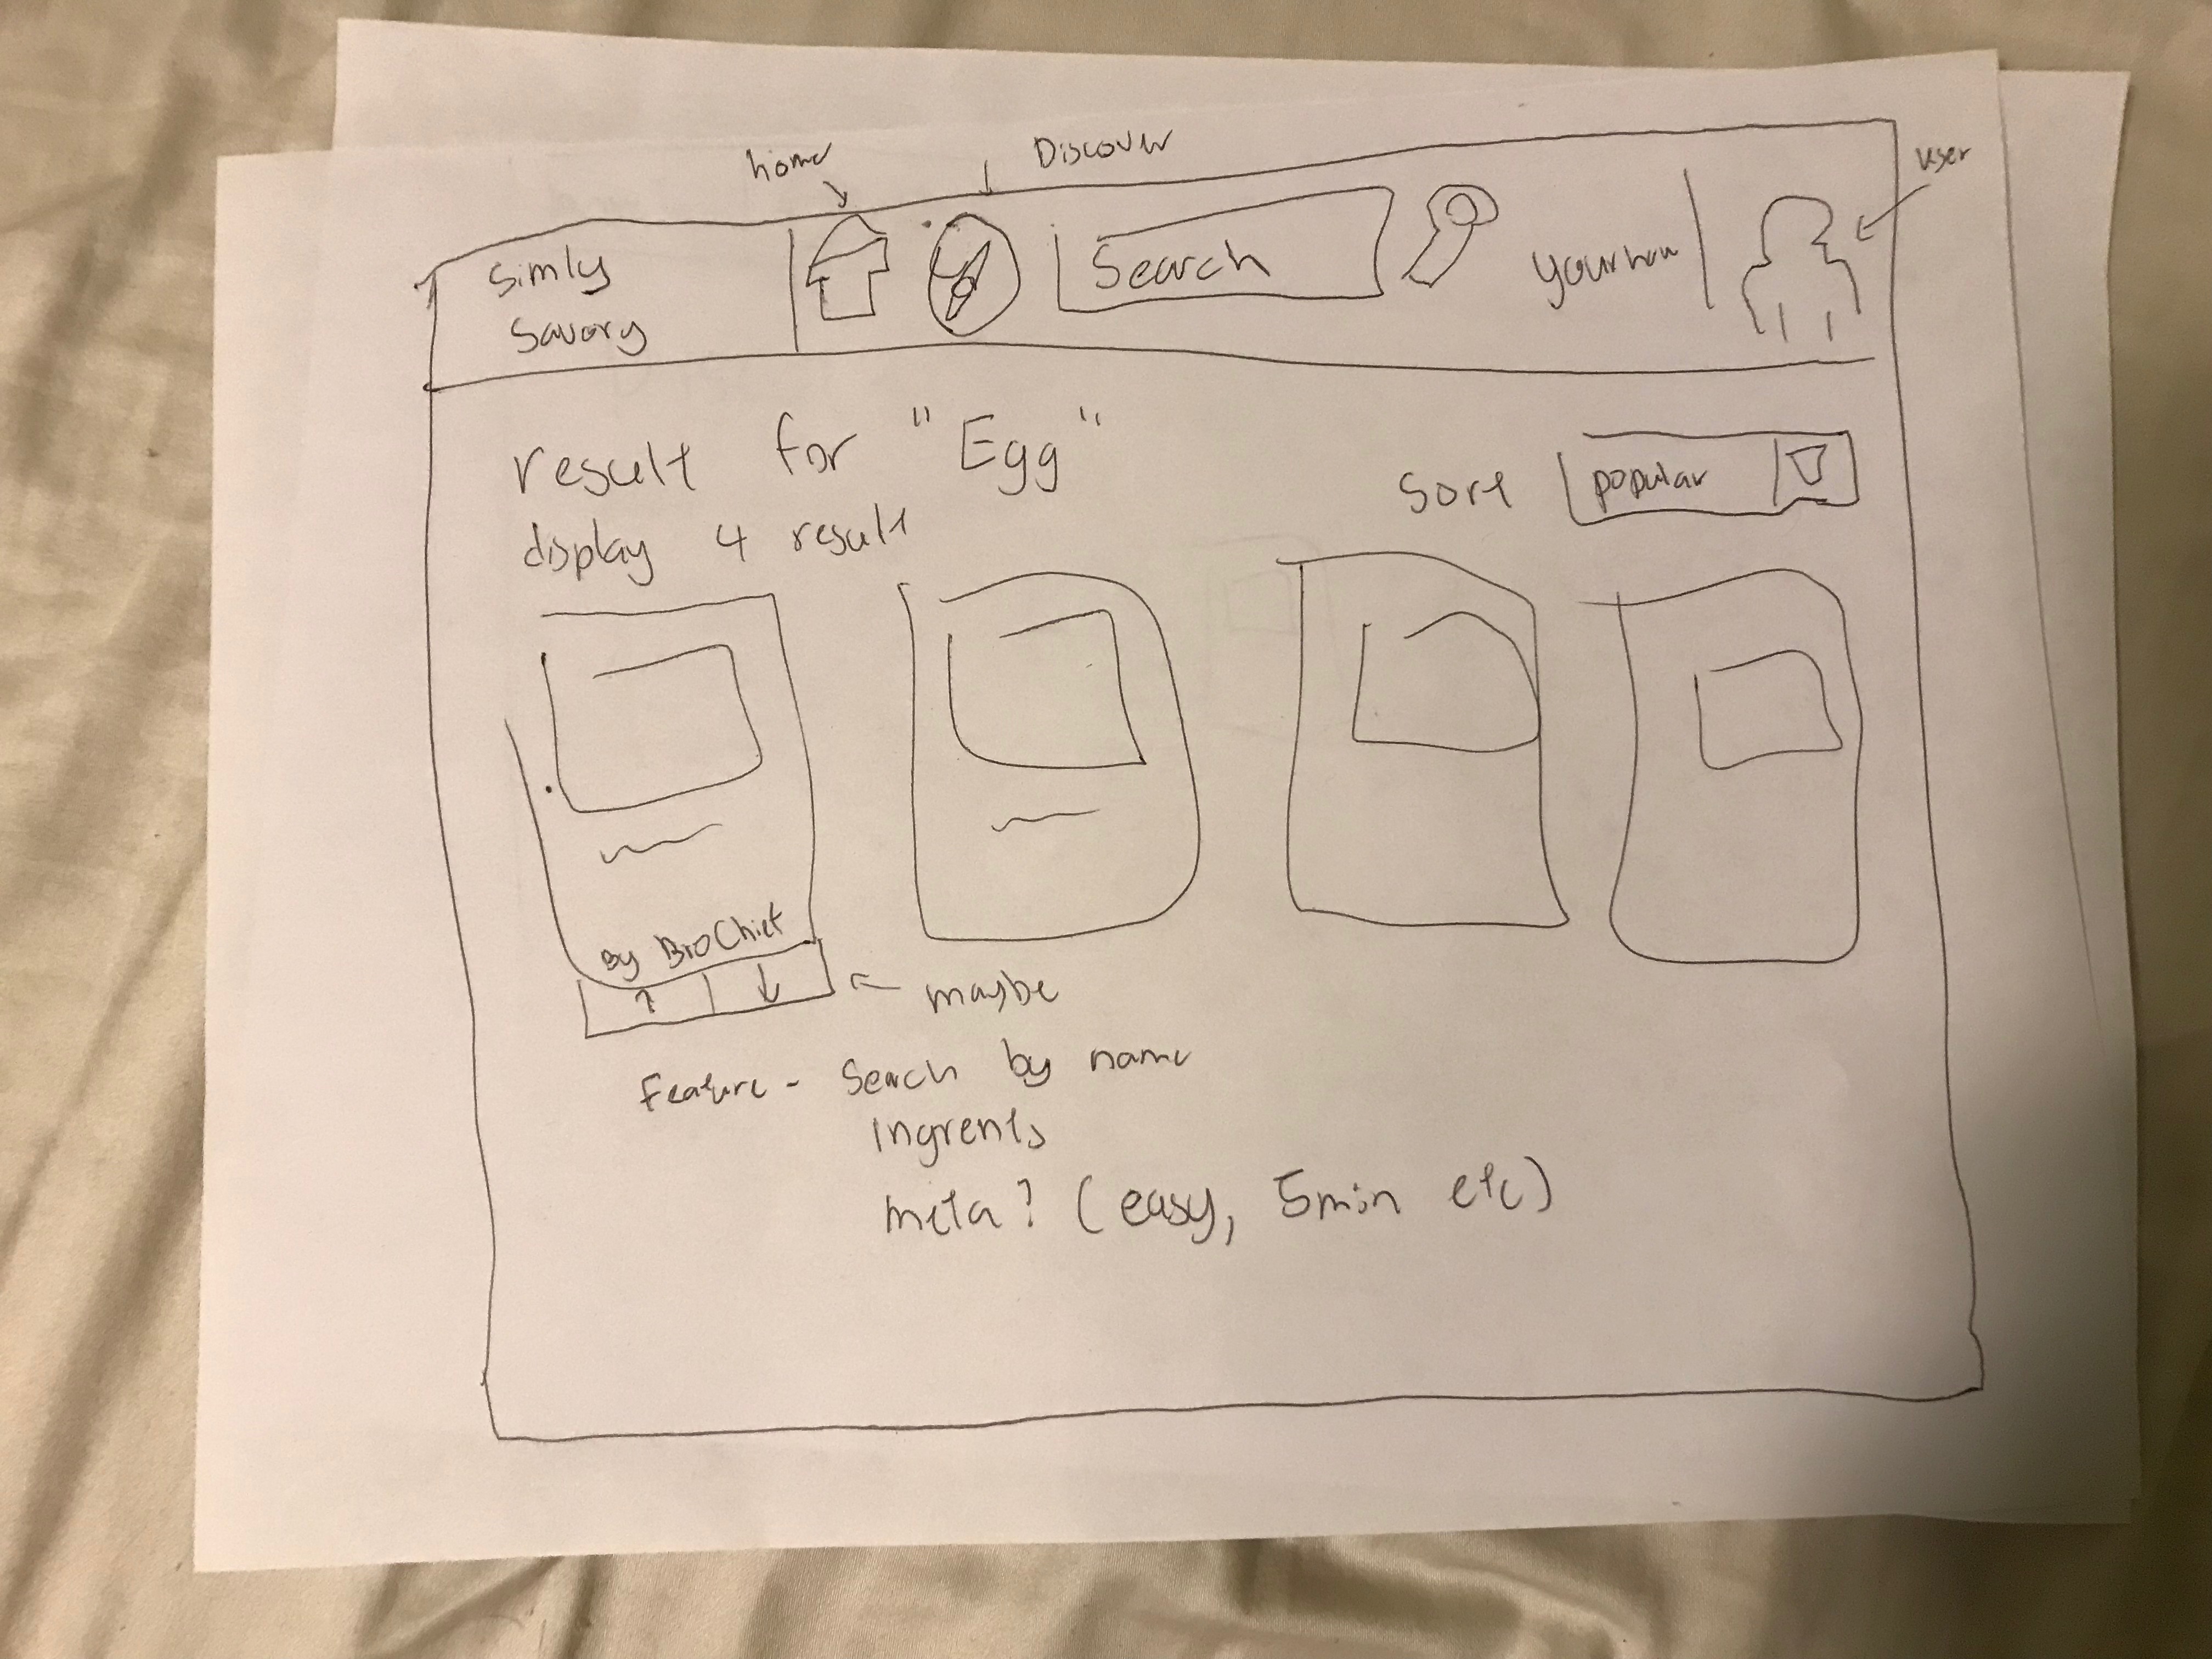 home
Discover
user
Simly
Savory
Search
result for "Egg"
display 4 result
Sort popular
By BroChief
↑ ↓ ← maybe
Feature - Search by name
Ingrents
meta? (easy, 5min etc)